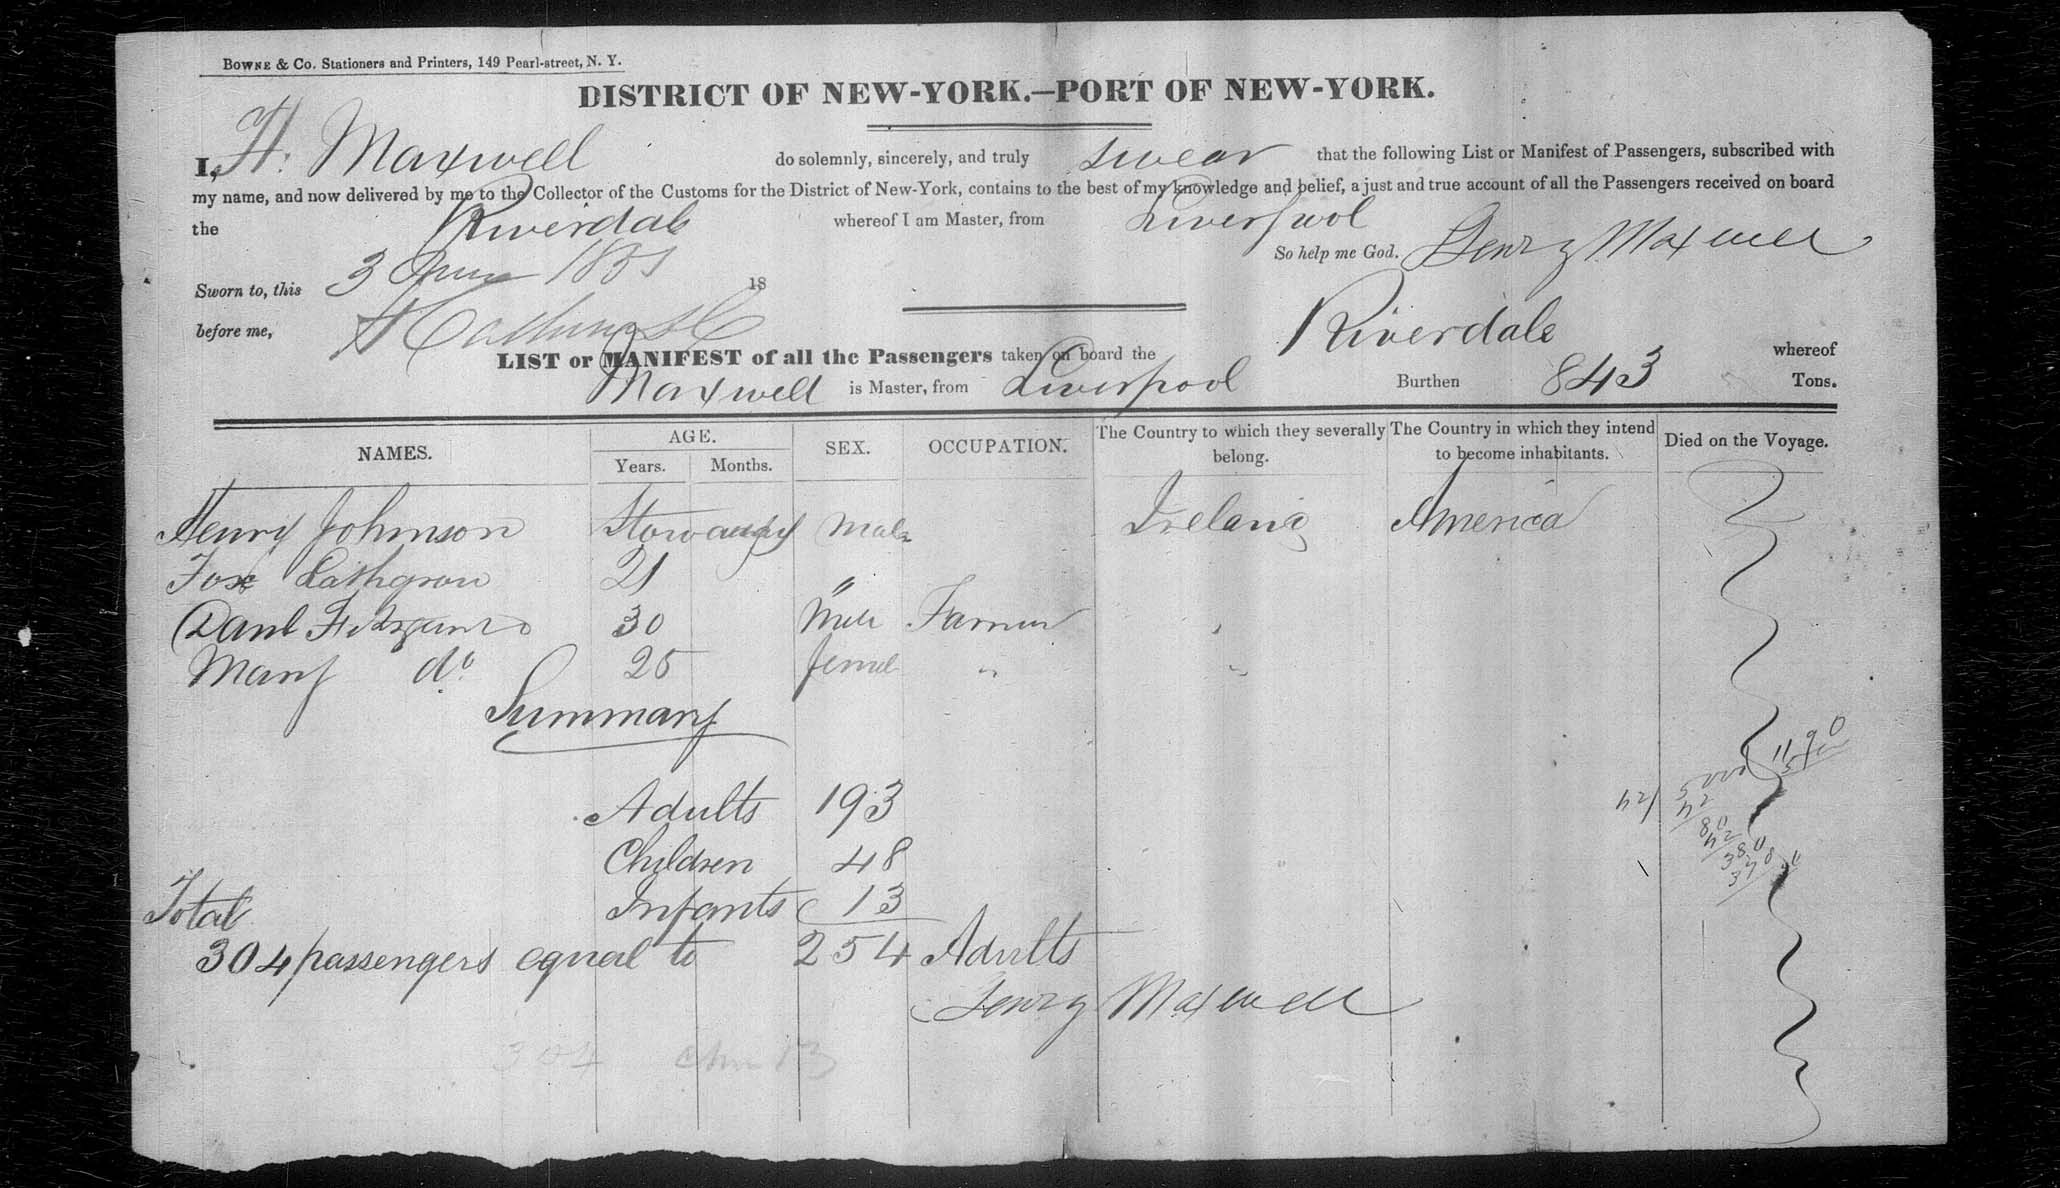 BOWNE & CO. Stationers and Printers, 149 Pearl-street, N. Y.
DISTRICT OF NEW-YORK.—PORT OF NEW-YORK.
I, H. Maxwell do solemnly, sincerely, and truly swear that the following List or Manifest of Passengers, subscribed with
my name, and now delivered by me to the Collector of the Customs for the District of New-York, contains to the best of my knowledge and belief, a just and true account of all the Passengers received on board
the Riverdale whereof I am Master, from Liverpool
So help me God. Henry Maxwell
Sworn to, this 3 June 1851 18
before me,
LIST or MANIFEST of all the Passengers taken on board the Riverdale whereof
Maxwell is Master, from Liverpool Burthen 843 Tons.
NAMES. AGE. Years. Months. SEX. OCCUPATION. The Country to which they severally belong. The Country in which they intend to become inhabitants. Died on the Voyage.
Henry Johnson Stowaway Male Ireland America
Fox 21 "
Danl 30 Male Farmer "
Mary do 25 Femal " "
Summary
Adults 193
Children 48
Infants 13
Total
304 passengers equal to 254 Adults
Henry Maxwell
304